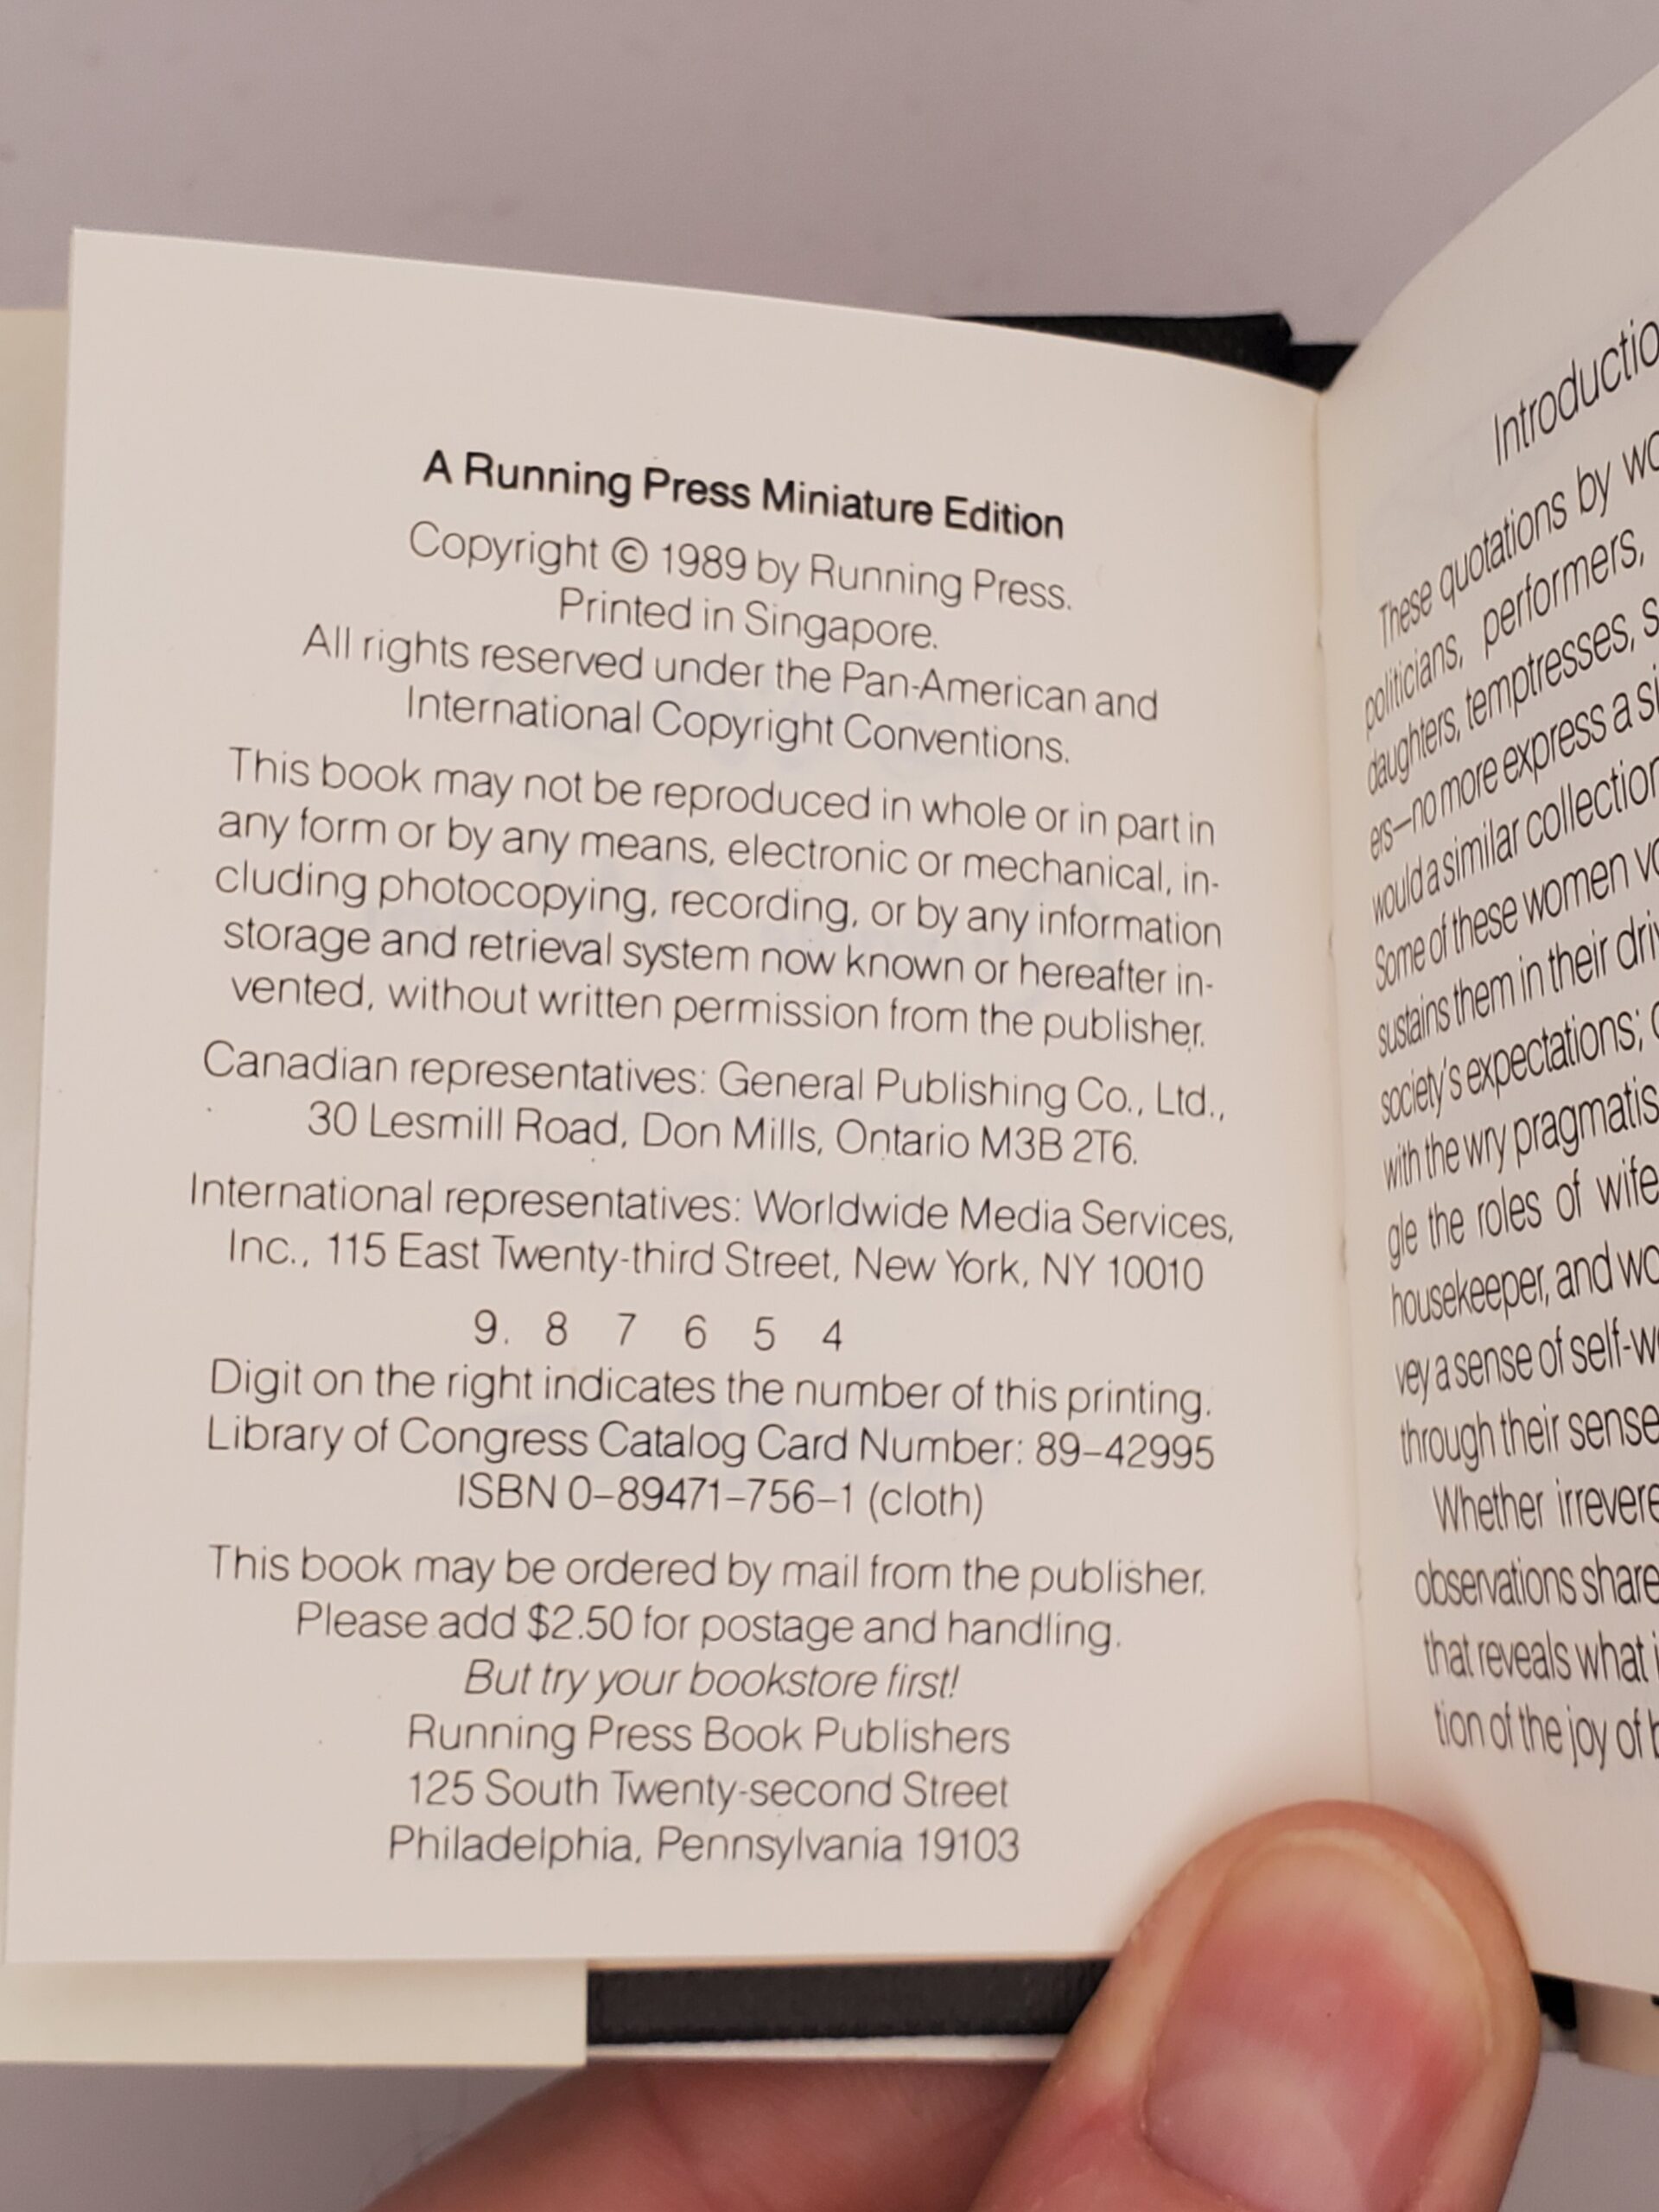 A Running Press Miniature Edition
Copyright © 1989 by Running Press.
Printed in Singapore.
All rights reserved under the Pan-American and
International Copyright Conventions.
This book may not be reproduced in whole or in part in
any form or by any means, electronic or mechanical, in-
cluding photocopying, recording, or by any information
storage and retrieval system now known or hereafter in-
vented, without written permission from the publisher.
Canadian representatives: General Publishing Co., Ltd.,
30 Lesmill Road, Don Mills, Ontario M3B 2T6.
International representatives: Worldwide Media Services,
Inc., 115 East Twenty-third Street, New York, NY 10010
9. 8 7 6 5 4
Digit on the right indicates the number of this printing.
Library of Congress Catalog Card Number: 89–42995
ISBN 0–89471–756–1 (cloth)
This book may be ordered by mail from the publisher.
Please add $2.50 for postage and handling.
But try your bookstore first!
Running Press Book Publishers
125 South Twenty-second Street
Philadelphia, Pennsylvania 19103
Introductio
These quotations by wo
politicians, performers,
daughters, temptresses, s
ers—no more express a si
would a similar collection
Some of these women vo
sustains them in their driv
society's expectations;
with the wry pragmatis
gle the roles of wife
housekeeper, and wo
vey a sense of self-w
through their sense
Whether irrevere
observations share
that reveals what i
tion of the joy of b